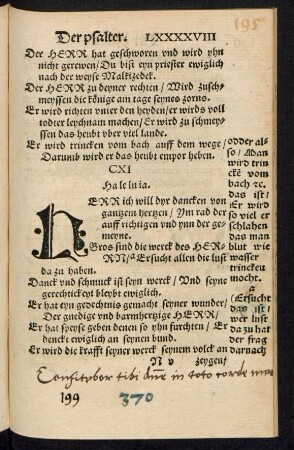 195
Der psalter. LXXXXVIII
Der HERR hat geschworen vnd wird yhn
nicht gerewen/ Du bist eyn priester ewiglich
nach der weyse Malkizedek.
Der HERR zu deyner rechten/ Wird zuschy-
meyssen die könige am tage seynes zorns.
Er wird richten vnter den heyden/ er wirds voll
todter leychnam machen/ Er wird zu schmeys-
sen das heubt vber viel lande.
Er wird trincken vom bach auff dem wege/
Darumb wird er das heubt empor heben.
CXI
Ha le lu ia.
HERR ich will dyr dancken von
gantzem hertzen/ Ym rad der
auff richtigen vnd ynn der ge-
meyne.
Gros sind die werck des HER-
RN/ Ersucht allen die lust
da zu haben.
Danck vnd schmuck ist seyn werck/ Vnd seyne
gerechtickeyt bleybt ewiglich.
Er hat eyn gedechtnis gemacht seyner wunder/
Der gnedige vnd barmhertzige HERR/
Er hat speyse geben denen so yhn furchten/ Er
denckt ewiglich an seynen bund.
Er wird die krafft seyner werck seynem volck an
N v zeygen/
odder al-
so/ Man
wird trin
cke vom
bach ꝛc.
das ist/
Er wird
so viel er
schlahen
das man
blut wie
wasser
trincken
mocht.
a
(Ersucht
das ist/
wer lust
da zu hat
der frag
darnach
Confitebor tibi dne in toto corde meo
199 370